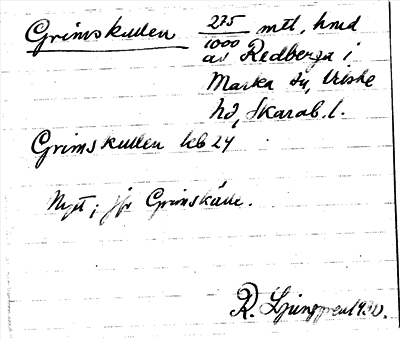 Grimskullen 275 mtl, hmd
1000
av Redberga i
Marka sn, Vilske
hd, Skarab. l.
Grimskullen kb 24
Nytt; jfr Grimskulle.
R. Ljunggren 1930.